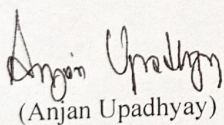 Anjan Upadhyay
(Anjan Upadhyay)